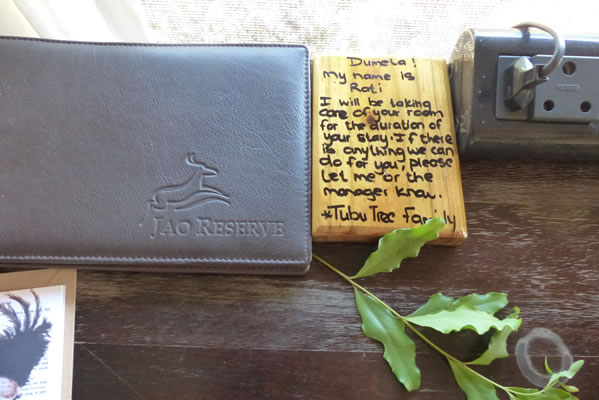 JAO RESERVE
Dumela!
My name is
Rati
I will be taking
care of your room
for the duration of
your stay. If there
is anything we can
do for you, please
let me or the
manager know.
*Tubu Tree Family